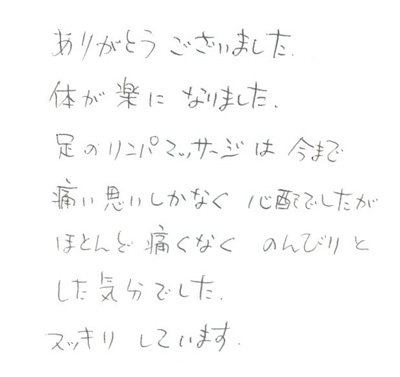 ありがとうございました.
体が楽に なりました.
足のリンパマッサージは 今まで
痛い思いしかなく 心配でしたが
ほとんど痛くなく のんびりと
した気分でした.
スッキリ しています.